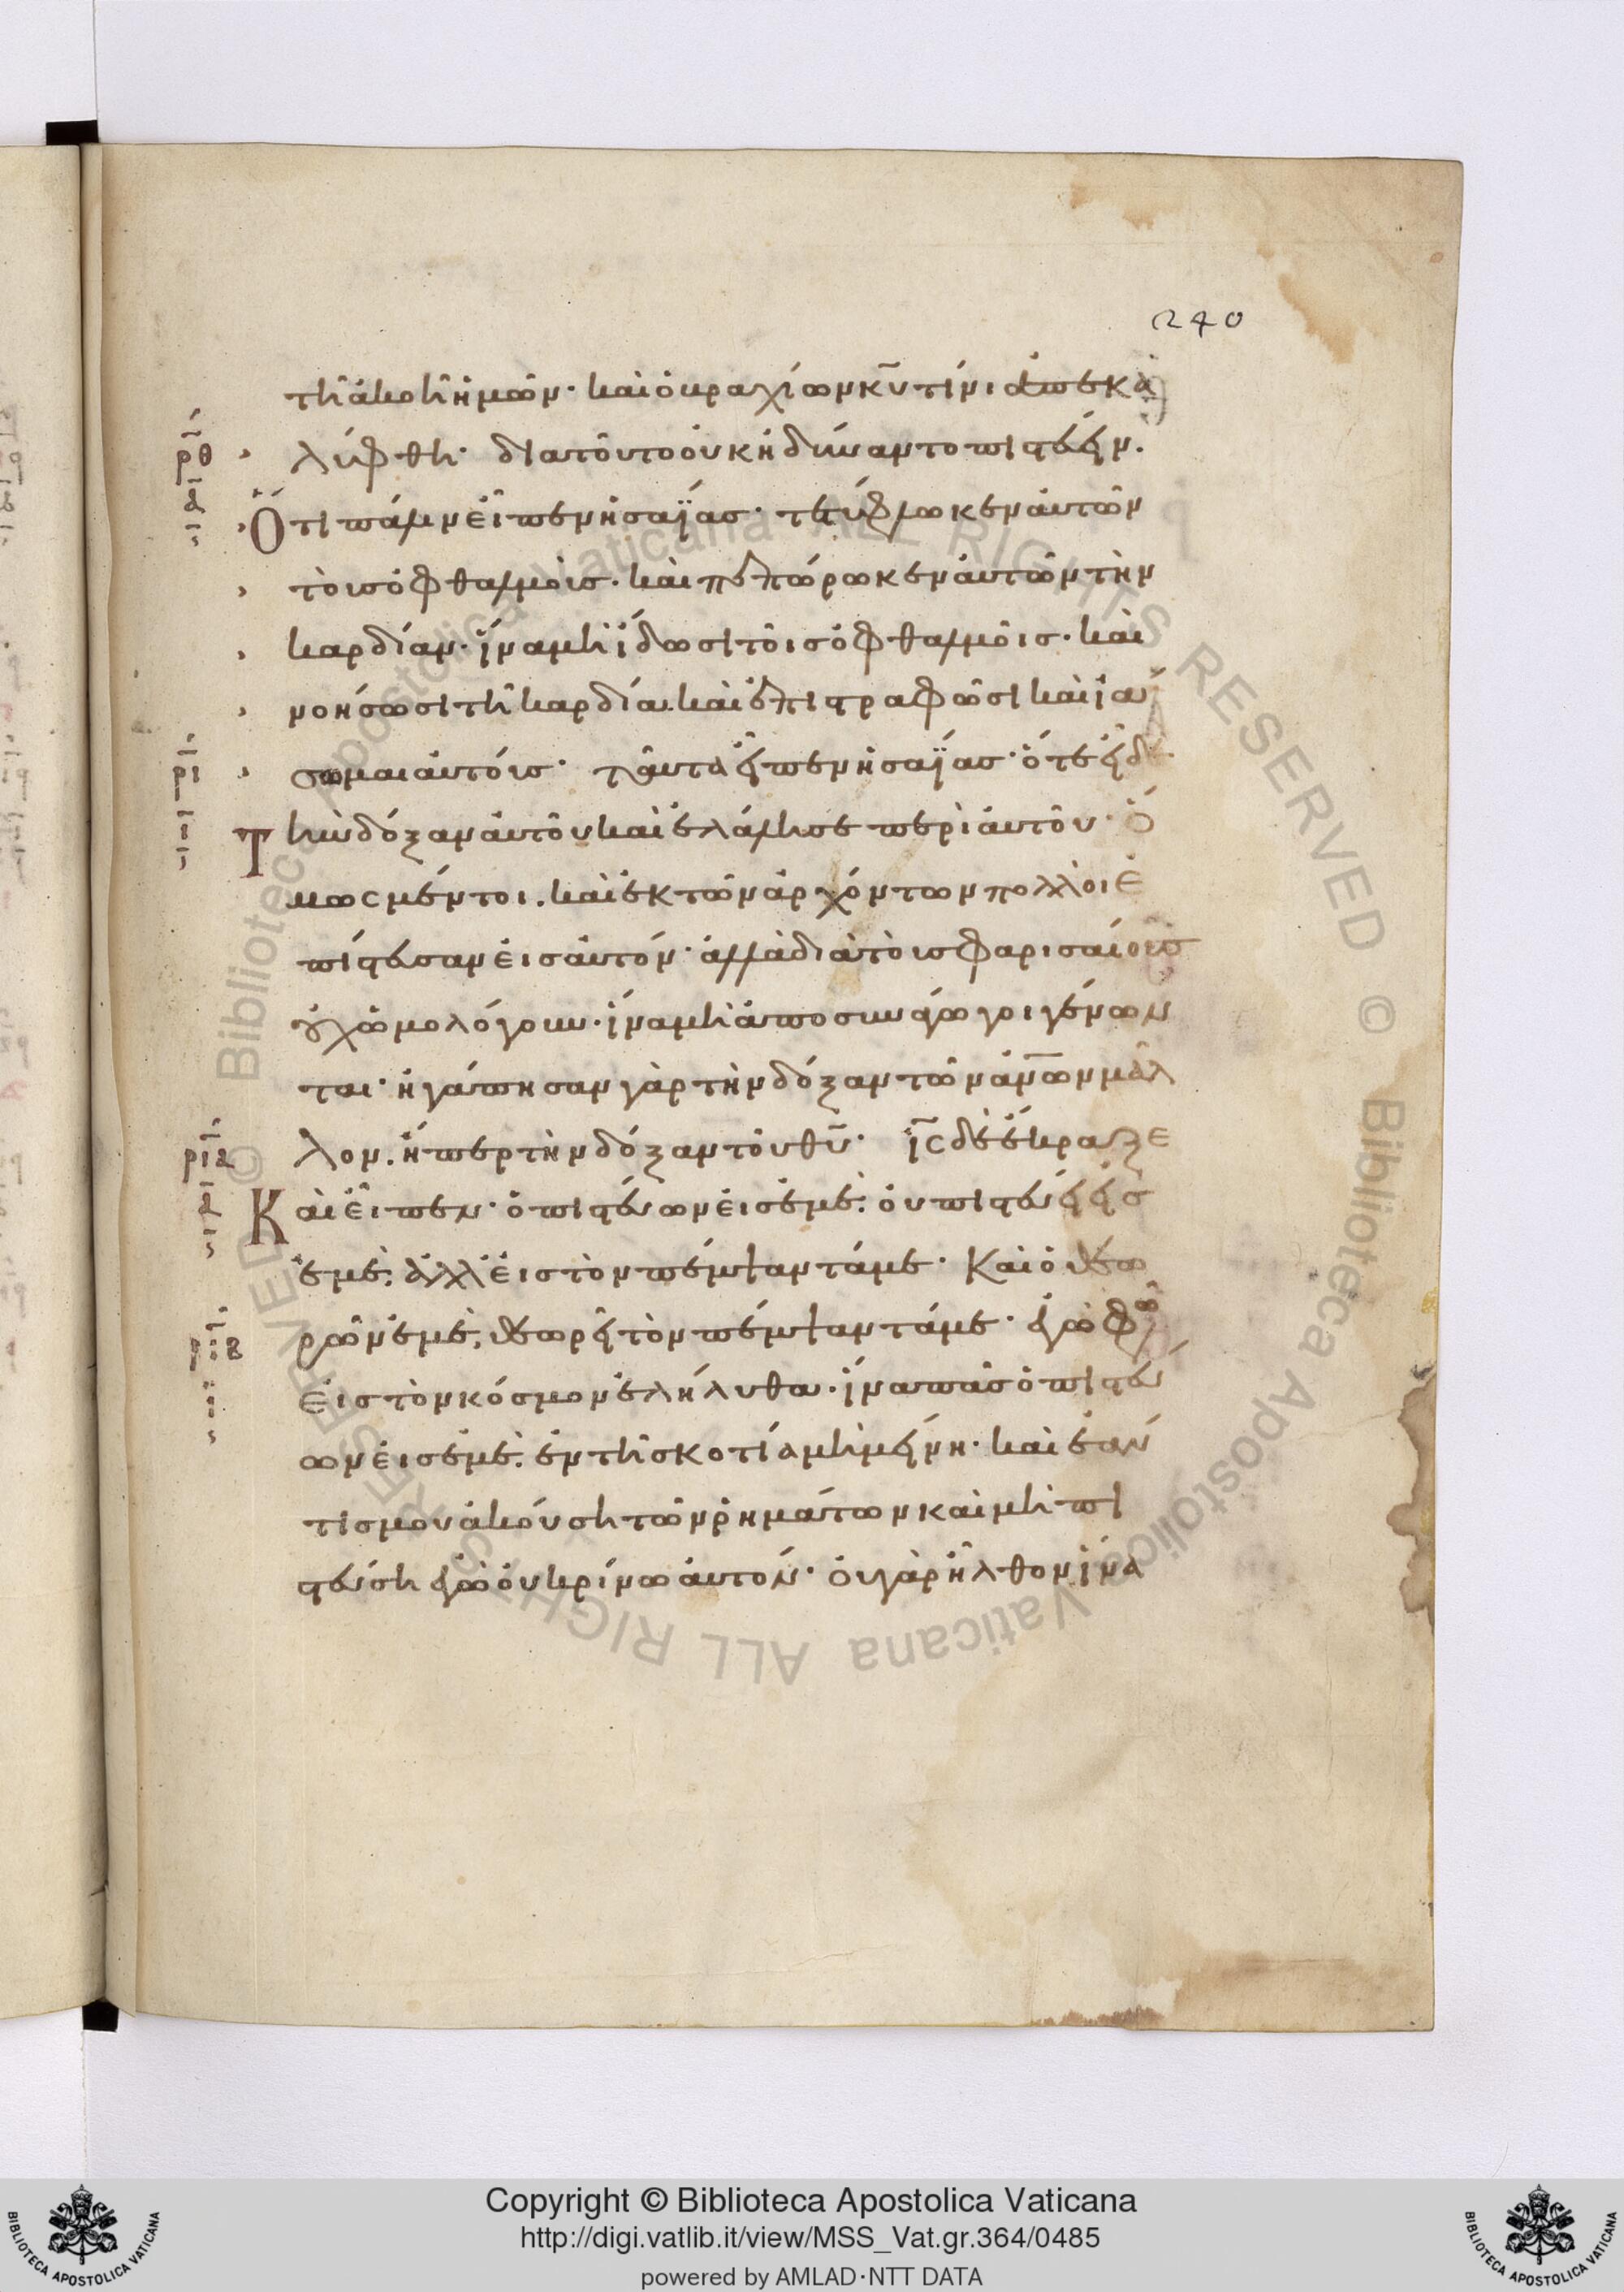 240
τῆ ἀκοῆ ἡμῶν· καὶ ὁ βραχίων κ̅υ̅ τίνι ἀπεκα
λύφθη· διατοῦτο οὐκ ἠδύναντο πιστεύειν.
ρθ
α
Ὅτι πάλιν εἶπεν ἡσαΐας· τετύφλωκεν αὐτῶν
τοὺσ ὀφθαλμοὺσ· καὶ πεπώρωκεν αὐτῶν τὴν
καρδίαν· ἵνα μὴ ἴδωσι τοῖσ ὀφθαλμοῖσ· καὶ
νοήσωσι τῆ καρδία καὶ ἐπιστραφῶσι καὶ ἰά
σωμαι αὐτούσ· ταῦτα εἶπεν ἡσαΐασ· ὅτε εἶδε
ρι
ι
Τὴν δόξαν αὐτοῦ καὶ ἐλάλησε περὶ αὐτοῦ· ὅ
μως μέντοι. καὶ ἐκ τῶν ἀρχόντων πολλοὶ ἐ
πίστευσαν εἰσ αὐτόν· ἀλλὰ διὰ τοὺσ φαρισαίουσ
οὐχ ὡμολόγουν· ἵνα μὴ ἀποσυνάγωγοι γένων
ται· ἠγάπησαν γὰρ τὴν δόξαν τῶν ἀν̅ω̅ν μᾶλ
λον. ἤπερ τὴν δόξαν τοῦ θ̅υ̅· ι̅ς̅ δὲ ἔκραζε
ρια
α
Καὶ εἶπεν· ὁ πιστεύων εἰσ ἐμὲ. οὐ πιστεύει εἰσ
ἐμὲ. ἀλλ' εἰσ τὸν πέμψαντά με· Καὶ ὁ θεω
ρῶν ἐμὲ, θεωρεῖ τὸν πέμψαντά με· ἐγὼ φῶσ
ριβ
ι
εἰσ τὸν κόσμον ἐλήλυθα· ἵνα πᾶσ ὁ πιστεύ
ων εἰσ ἐμὲ. ἐν τῆ σκοτία μὴ μείνη· καὶ ἐάν
τισ μου ἀκούση τῶν ῥημάτων καὶ μὴ πι
στεύση ἐγὼ οὐ κρίνω αὐτόν· οὐ γὰρ ἦλθον ἵνα
Copyright © Biblioteca Apostolica Vaticana
http://digi.vatlib.it/view/MSS_Vat.gr.364/0485
powered by AMLAD·NTT DATA